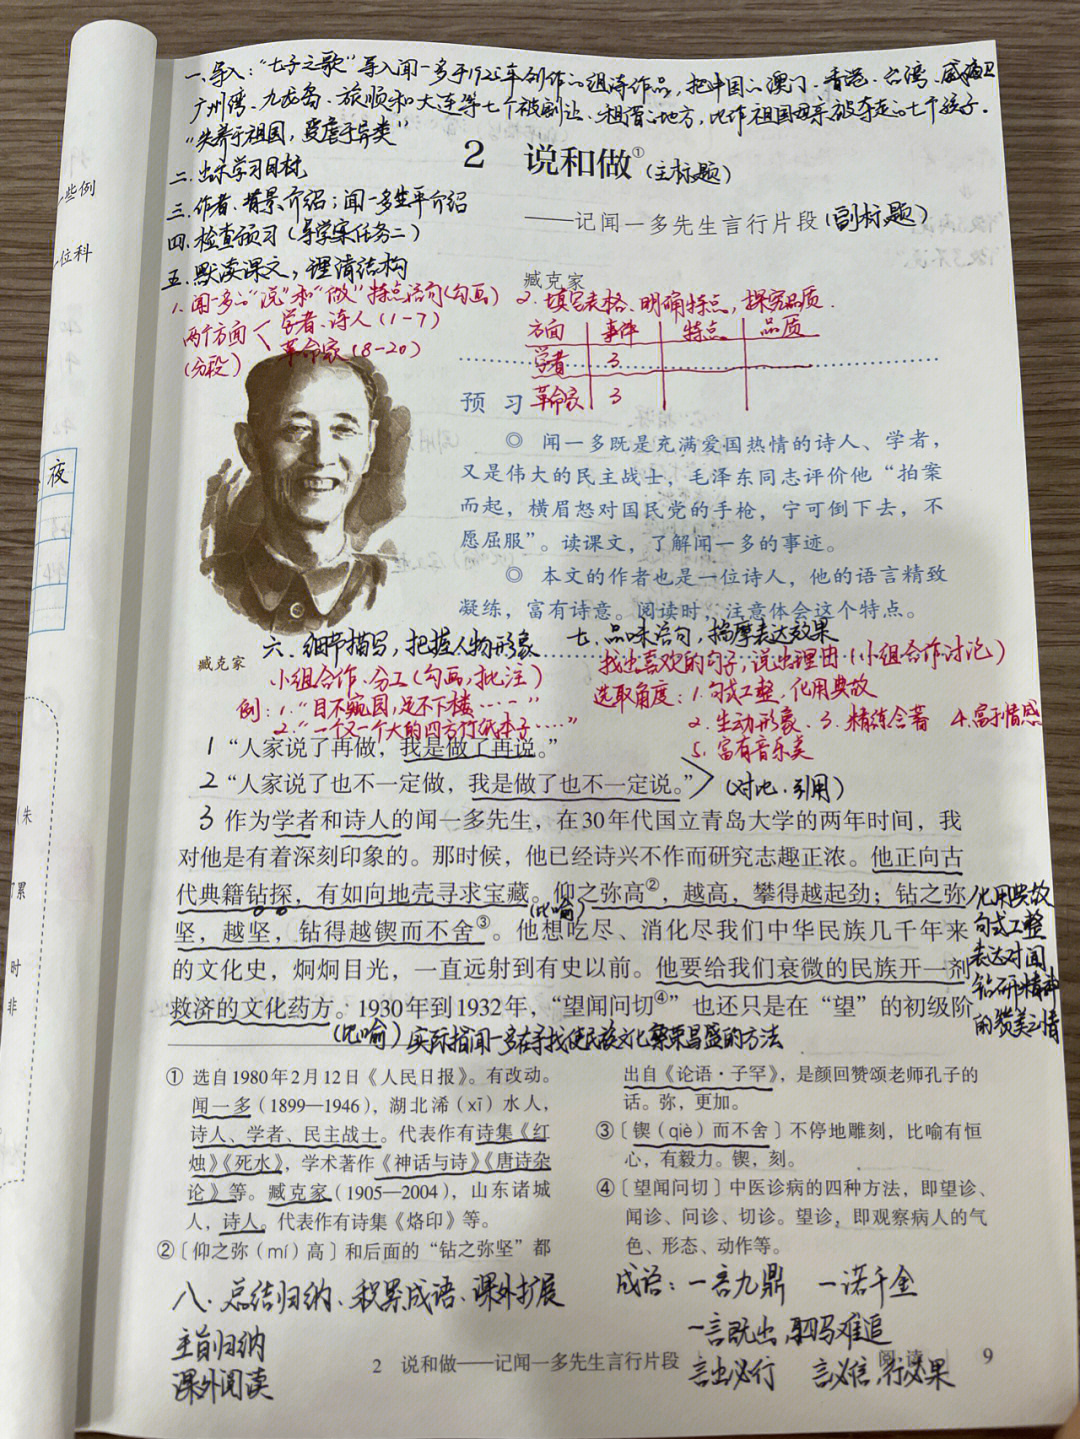 一、导入:“七子之歌”导入闻一多于1925年创作的组诗作品,把中国的澳门、香港、台湾、威海卫
广州湾、九龙岛、旅顺和大连等七个被割让、租借的地方,比作祖国母亲被夺走的七个孩子.
“失养于祖国,受虐于异类”
2 说和做①(主标题)
二.出示学习目标
三.作者.背景介绍;闻一多生平介绍
——记闻一多先生言行片段(副标题)
四.检查预习(导学案任务二)
五.默读课文,理清结构
臧克家
1.闻一多的“说”和“做”特点语句(勾画)
两个方面<学者.诗人(1-7)
(分段) 革命家(8-20)
2.填写表格、明确特点,探究品质.
方面 事件 特点 品质
学者 3
革命家 3
预 习
◎ 闻一多既是充满爱国热情的诗人、学者,
又是伟大的民主战士,毛泽东同志评价他“拍案
而起,横眉怒对国民党的手枪,宁可倒下去,不
愿屈服”。读课文,了解闻一多的事迹。
◎ 本文的作者也是一位诗人,他的语言精致
凝练,富有诗意。阅读时,注意体会这个特点。
臧克家
六.细节描写,把握人物形象
小组合作.分工(勾画,批注)
例:1.“目不窥园,足不下楼……”
2.“一个又一个大的四方竹纸本子……”
七.品味语句,揣摩表达效果
找出喜欢的句子,说出理由.(小组合作讨论)
选取角度:1.句式工整,化用典故
2.生动形象.3.精练含蓄 4.富于情感
5.富有音乐美
1“人家说了再做,我是做了再说。”
2“人家说了也不一定做,我是做了也不一定说。”(对比.引用)
3作为学者和诗人的闻一多先生,在30年代国立青岛大学的两年时间,我
对他是有着深刻印象的。那时候,他已经诗兴不作而研究志趣正浓。他正向古
代典籍钻探,有如向地壳寻求宝藏。仰之弥高②,越高,攀得越起劲;钻之弥
(比喻)
坚,越坚,钻得越锲而不舍③。他想吃尽、消化尽我们中华民族几千年来
的文化史,炯炯目光,一直远射到有史以前。他要给我们衰微的民族开一剂
救济的文化药方。1930年到1932年,“望闻问切④”也还只是在“望”的初级阶
化用典故
句式工整
表达对闻
钻研精神
的赞美之情
(比喻)实际指闻一多在寻找使民族文化繁荣昌盛的方法
① 选自1980年2月12日《人民日报》。有改动。
闻一多(1899—1946),湖北浠(xī)水人,
诗人、学者、民主战士。代表作有诗集《红
烛》《死水》,学术著作《神话与诗》《唐诗杂
论》等。臧克家(1905—2004),山东诸城
人,诗人。代表作有诗集《烙印》等。
②〔仰之弥(mí)高〕和后面的“钻之弥坚”都
出自《论语·子罕》,是颜回赞颂老师孔子的
话。弥,更加。
③〔锲(qiè)而不舍〕不停地雕刻,比喻有恒
心,有毅力。锲,刻。
④〔望闻问切〕中医诊病的四种方法,即望诊、
闻诊、问诊、切诊。望诊,即观察病人的气
色、形态、动作等。
八.总结归纳、积累成语、课外扩展
主旨归纳
课外阅读
成语:一言九鼎 一诺千金
一言既出,驷马难追
言出必行 言必信,行必果
2 说和做——记闻一多先生言行片段
阅 读 9
些例
位科
夜
朱
累
时
非